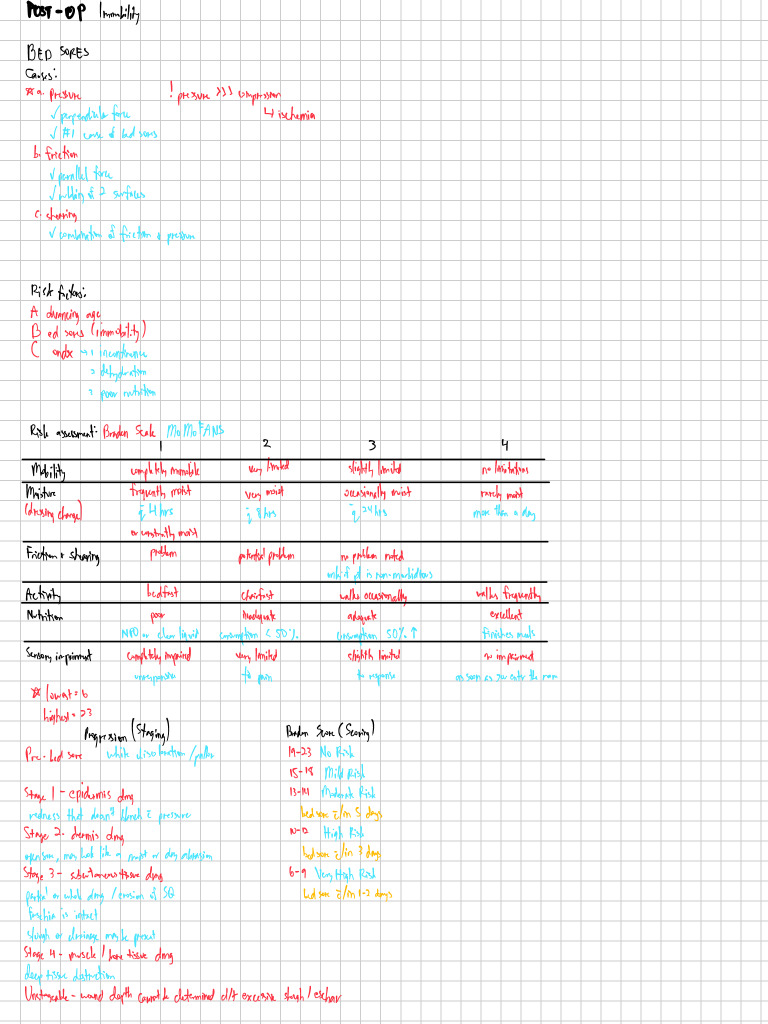 POST-OP Immobility
BED SORES
Causes:
☆ a. pressure
! pressure >>> compression
↳ ischemia
✓ perpendicular force
✓ #1 cause of bed sores
b. friction
✓ parallel force
✓ rubbing of 2 surfaces
c. shearing
✓ combination of friction & pressure
Risk factors:
A dvancing age
B ed sores (immobility)
C ondx → 1 incontinence
2 dehydration
3 poor nutrition
Risk assessment: Braden Scale MoMoFANS
1 2 3 4
Mobility completely immobile very limited slightly limited no limitations
Moisture frequently moist very moist occasionally moist rarely moist
(dressing change) q̄ 4 hrs q̄ 8 hrs q̄ 24 hrs more than a day
or constantly moist
Friction & shearing problem potential problem no problem noted
Activity bedfast chairfast walks occasionally walks frequently
Nutrition poor inadequate adequate excellent
NPO or clear liquid consumption < 50% consumption 50% ↑ finishes meals
Sensory impairment completely impaired very limited slightly limited no impairment
unresponsive to pain to response as soon as you enter the room
☆ lowest = 6
highest = 23
Progression (Staging)
Pre-bed sore white discoloration / pallor
Stage 1 - epidermis dmg
redness that doesn't blanch c̄ pressure
Stage 2 - dermis dmg
open sore, may look like a moist or dry abrasion
Stage 3 - subcutaneous tissue dmg
partial or whole dmg / erosion of SQ
fascia is intact
slough or drainage may be present
Stage 4 - muscle / bone tissue dmg
deep tissue destruction
Unstageable - wound depth cannot be determined d/t excessive slough / eschar
Braden Score (Scoring)
19-23 No Risk
15-18 Mild Risk
13-14 Moderate Risk
bed sore c̄/in 5 days
10-12 High Risk
bed sore c̄/in 3 days
6-9 Very High Risk
bed sore c̄/in 1-2 days